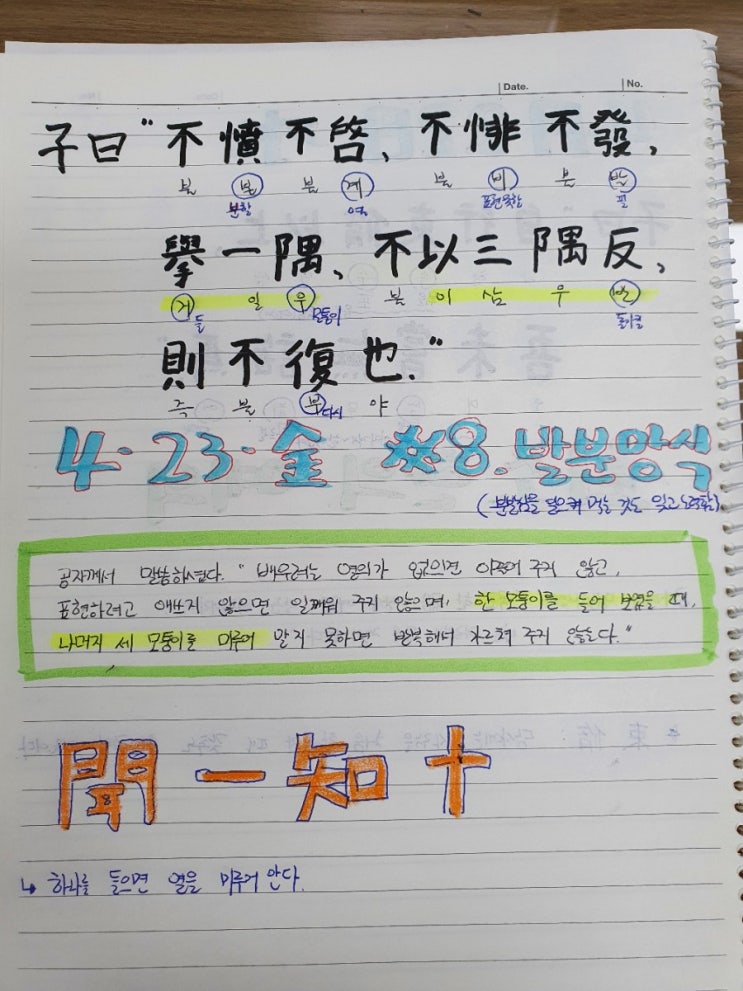 Date.
No.
子曰 "不憤不啓, 不悱不發,
불 분 불 계 불 비 불 발
분할 열 표현못할 필
擧一隅, 不以三隅反,
거 일 우 불 이 삼 우 반
들 모퉁이 돌이킬
則不復也."
즉 불 부 야
다시
4·23·金 #8. 발분망식
(분발심을 일으켜 먹는 것도 잊고 노력함)
공자께서 말씀하셨다. "배우려는 열의가 없으면 이끌어 주지 않고,
표현하려고 애쓰지 않으면 일깨워 주지 않으며, 한 모퉁이를 들어 보였을 때,
나머지 세 모퉁이를 미루어 알지 못하면 반복해서 가르쳐 주지 않는다."
聞一知十
↳ 하나를 들으면 열을 미루어 안다.